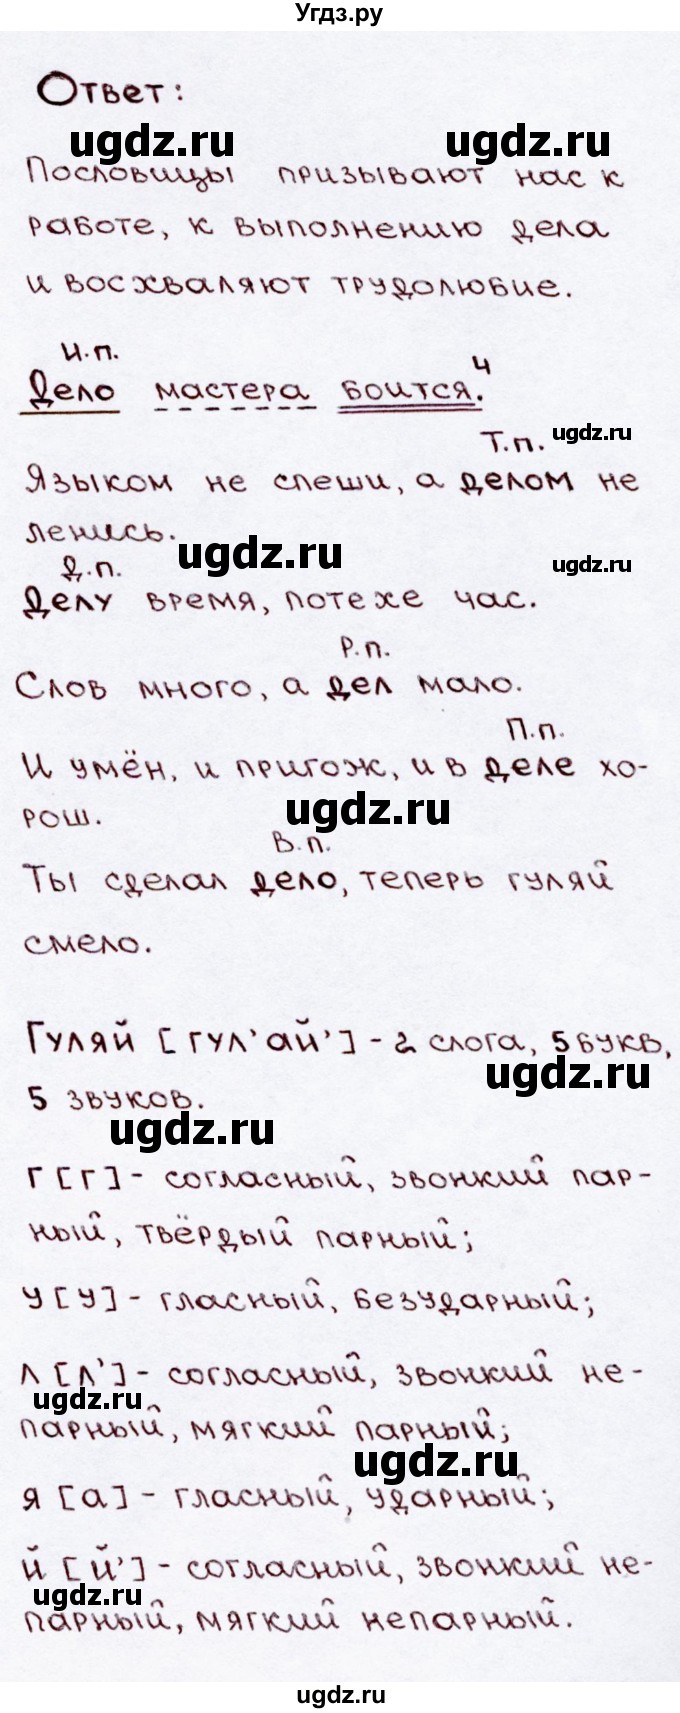 Угдз.ру
Ответ:
ugdz.ru ugdz.ru
Пословицы призывают нас к
работе, к выполнению дела
и восхваляют трудолюбие.
И.п. 4
Дело мастера боится.
Т.п. ugdz.ru
Языком не спеши, а делом не
ленись.
ugdz.ru ugdz.ru
Д.п.
Делу время, потехе час.
Р.п.
Слов много, а дел мало.
П.п.
И умён, и пригож, и в деле хо-
рош.
ugdz.ru
В.п.
Ты сделал дело, теперь гуляй
смело.
Гуляй [гул'ай'] - 2 слога, 5 букв,
ugdz.ru
5 звуков.
ugdz.ru
Г [г] - согласный, звонкий пар-
ный, твёрдый парный;
У [у] - гласный, безударный;
Л [л'] - согласный, звонкий не-
ugdz.ru
парный, мягкий парный;
ugdz.ru
Я [а] - гласный, ударный;
Й [й'] - согласный, звонкий не-
ugdz.ru
парный, мягкий непарный.
ugdz.ru